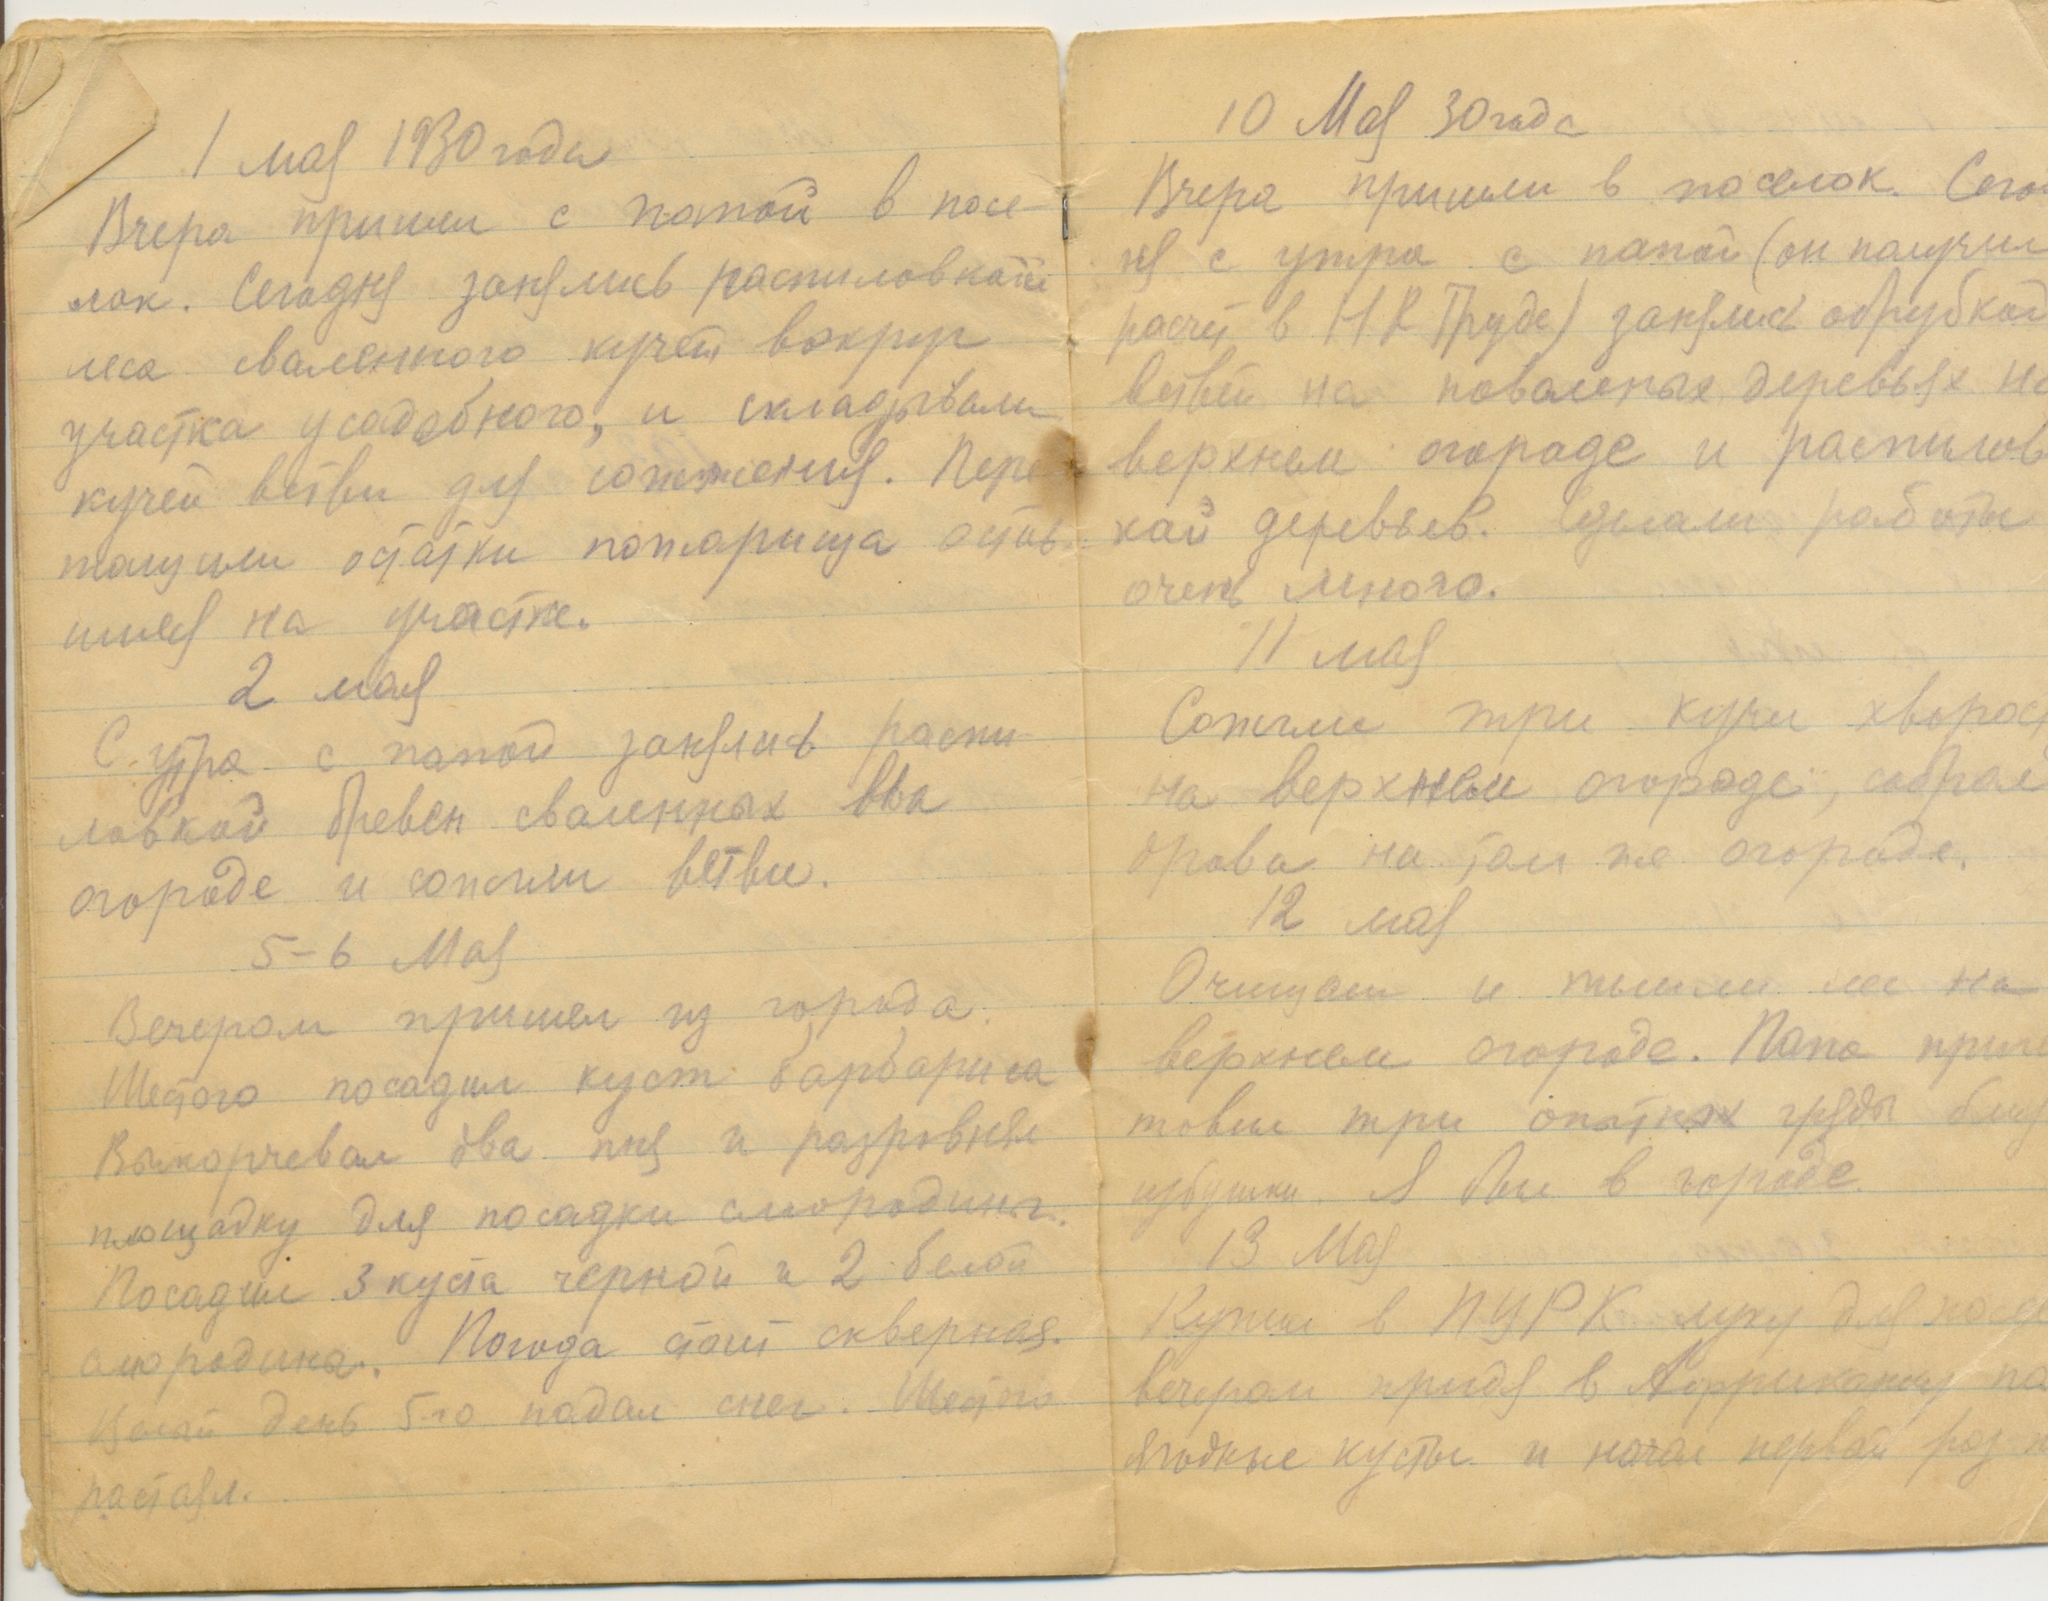 1 мая 1930 года
Вчера пришел с папой в посе-
лок. Сегодня занялись распиловкой
леса сваленного кучей вокруг
участка усадебного, и складывали
кучей ветви для сожжения. Пере
тащили остатки пожарища остав
шияся на участке.
2 мая
С утра с папой занялись распи
ловкой бревен сваленных
огороде и сожгли ветви.
5-6 Мая
Вечером пришел из города.
Шестого посадил куст барбариса
Выкорчевал два пня и разровнял
площадку для посадки смородины.
Посадил 3 куста черной и 2 белой
смородина. Погода стоит скверная.
Весай день 5-го падал снег. Шестго
растаял.
10 Мая 30 года
Вчера пришли в поселок. Сего
ня с утра с папой (он получил
расчет в Н К Труде) занялись обрубкой
ветвей на поваленых деревьях на
верхнем огороде и распилов
кай деревьев. Сделали работы
очень много.
11 мая
Сожгли три кучи хворос
на верхнем огороде, собрал
дрова на том же огороде.
12 мая
Очищал и на
верхнем огороде. Папа приго
товил три гряды близ
избушки. Я был в городе.
13 Мая
Купил в ПУРК луку для поса
вечером придя в по
ягодные кусты и начал первай раз